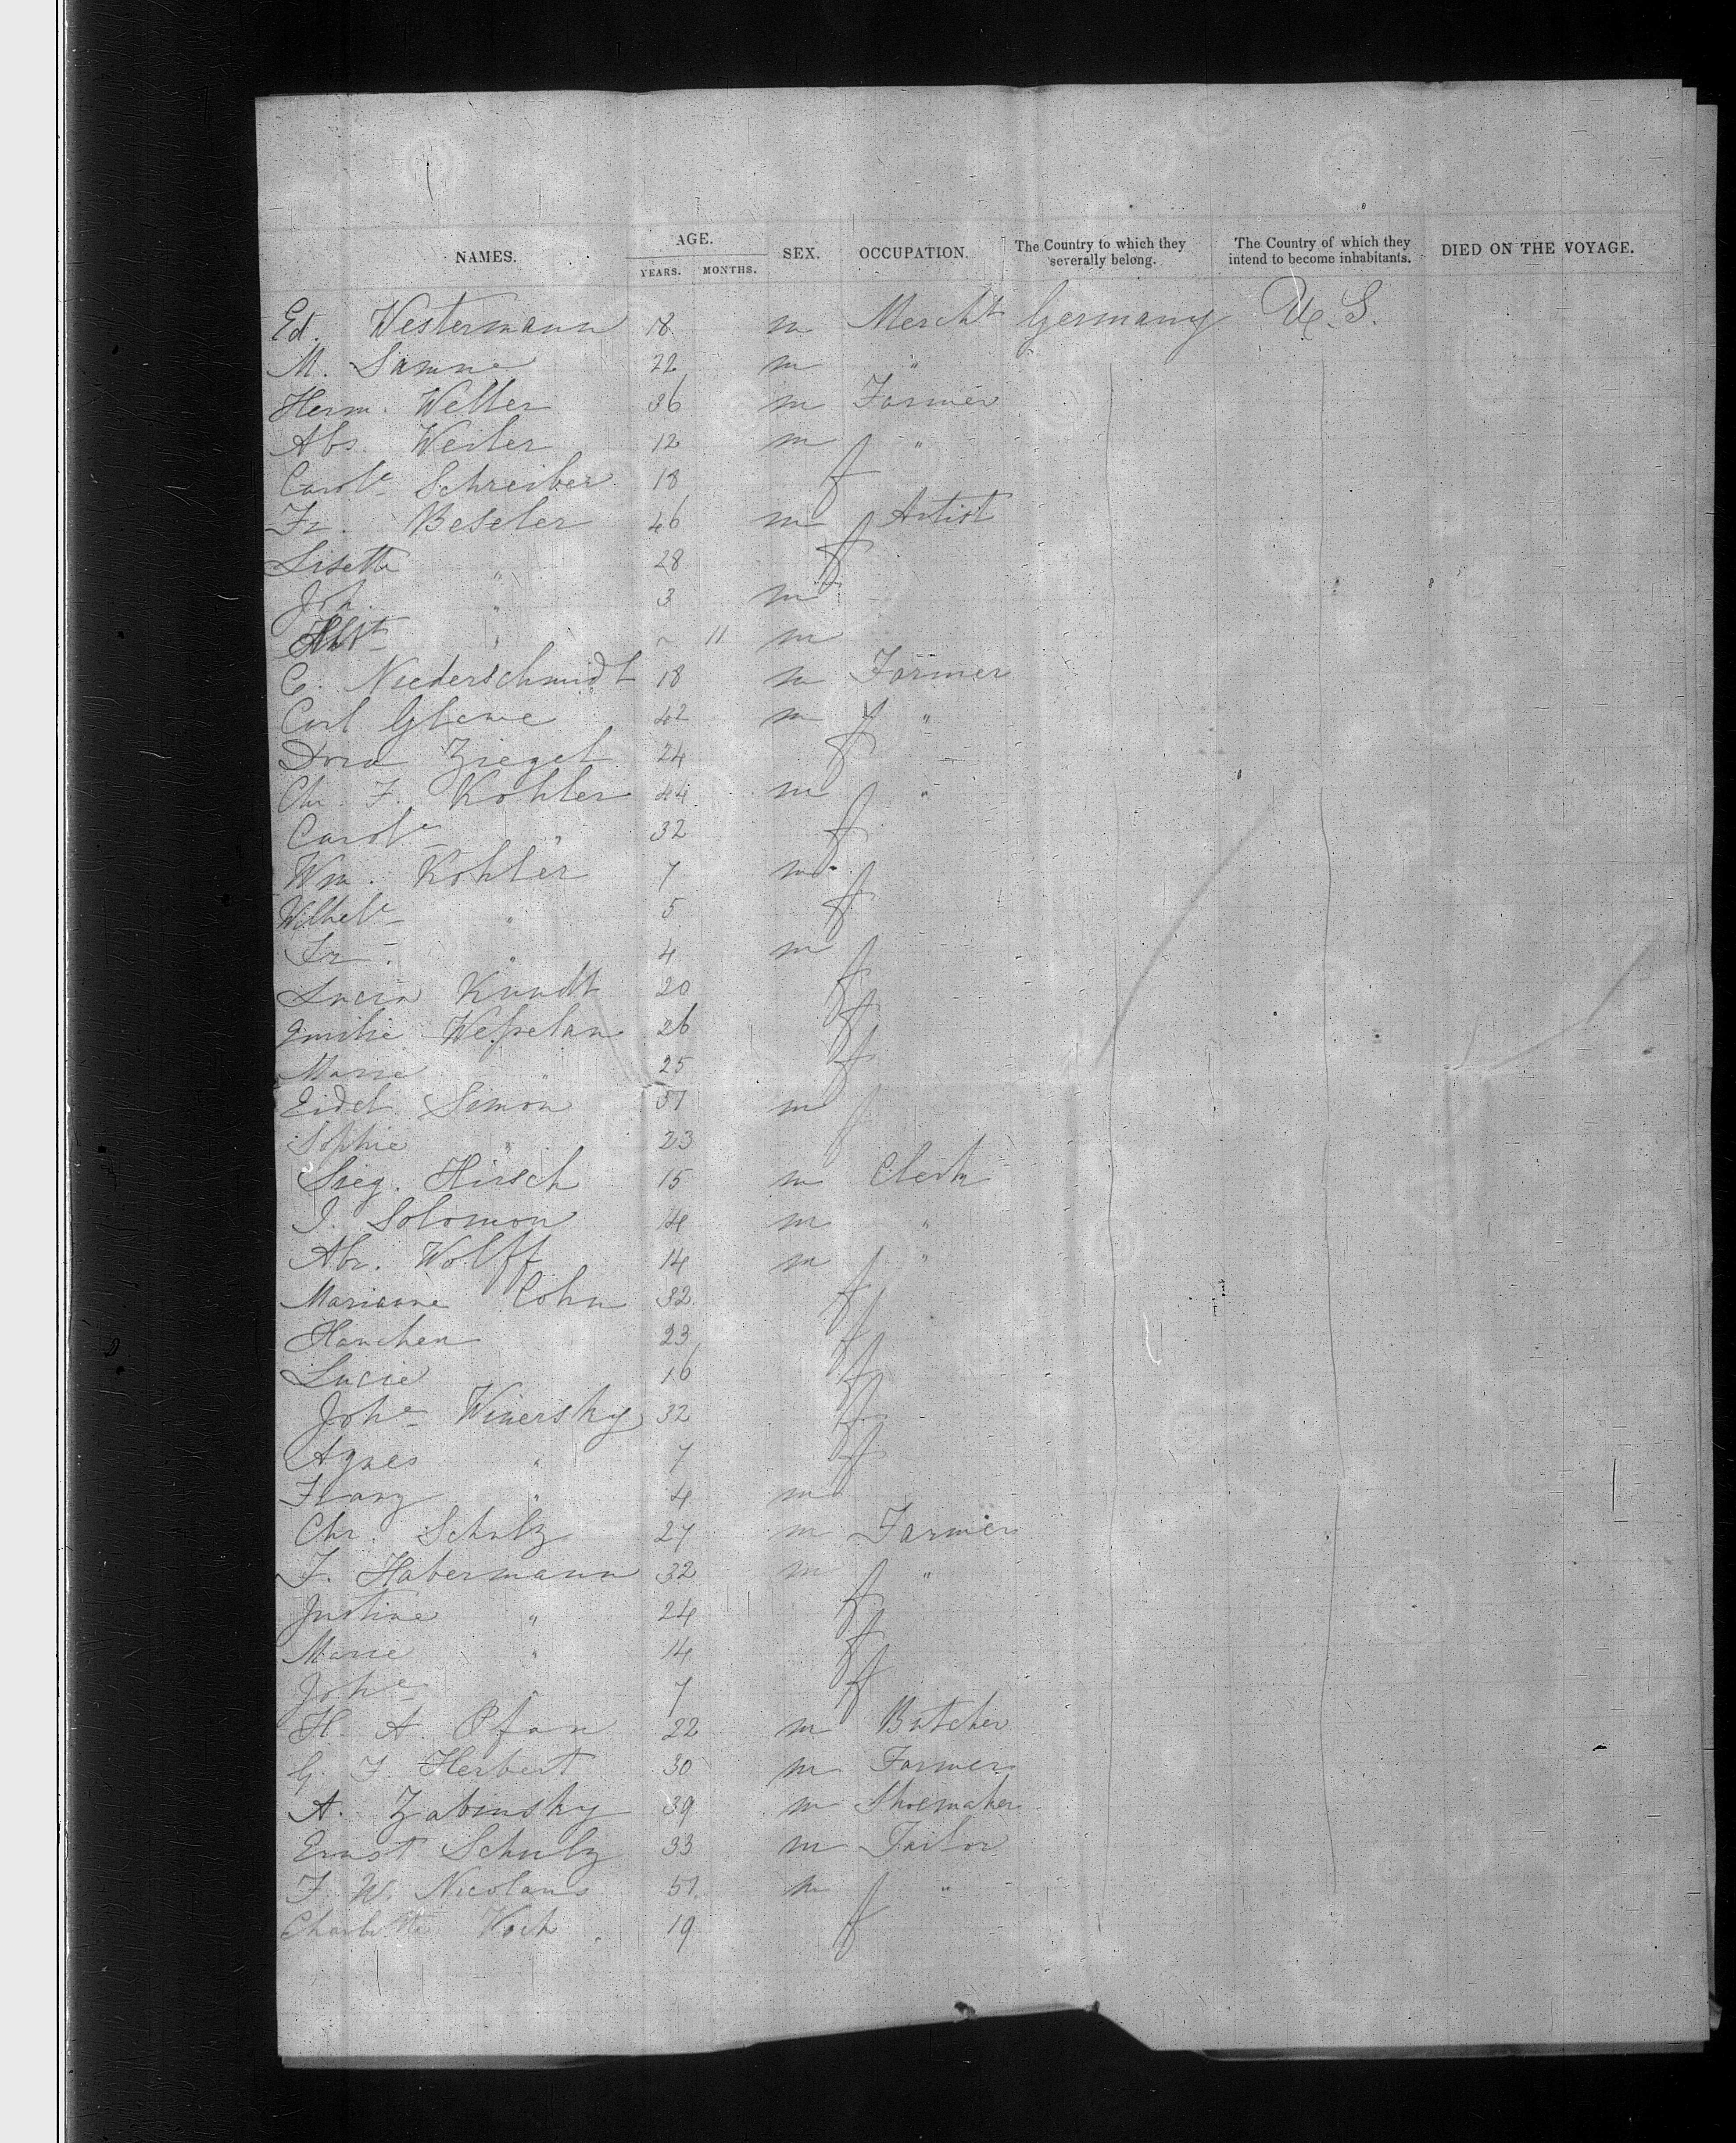 NAMES. AGE. YEARS. MONTHS. SEX. OCCUPATION. The Country to which they severally belong. The Country of which they intend to become inhabitants. DIED ON THE VOYAGE.
Ed. Westermann 18 m Mercht Germany U.S.
M. Samne 22 m "
Herm. Weller 36 m Farmer
Abs. Weiler 12 m "
Carole Schreiber 18 f
Fr. Beseler 46 m Artist
Lisette " 28 f
Joh. " 3 m
" 11 m
C. Niederschmidt 18 m Farmer
Carl Glewe 42 m "
Dora Ziegel 24 f
Chr. F. Kohler 44 m "
Carole " 32 f
Wm. Kohler 7 m
Wilhele " 5 f
Fr. " 4 m
Lucia Kundt 20 f
Emilie 26 f
Marie " 25 f
Eidel Simon 51 m
Sophie " 23
Sieg. Hirsch 15 m Clerk
I. Solomon 14 m "
Abr. Wolff 14 m "
Marianne Cohn 32 f
Hanchen 23 f
Lucie 16 f
Johe Winersky 32 f
Agnes " 7 f
Franz " 4 m
Chr. Schulz 27 m Farmer
F. Habermann 32 m "
Justine " 24 f
Marie " 14 f
Johe " 7 f
H. A. Pfan 22 m Butcher
G. F. Herbert 30 m Farmer
A. Zabinsky 39 m Shoemaker
Ernst Schulz 33 m Tailor
F. W. Nicolaus 51 m "
Charlotte Koch 19 f